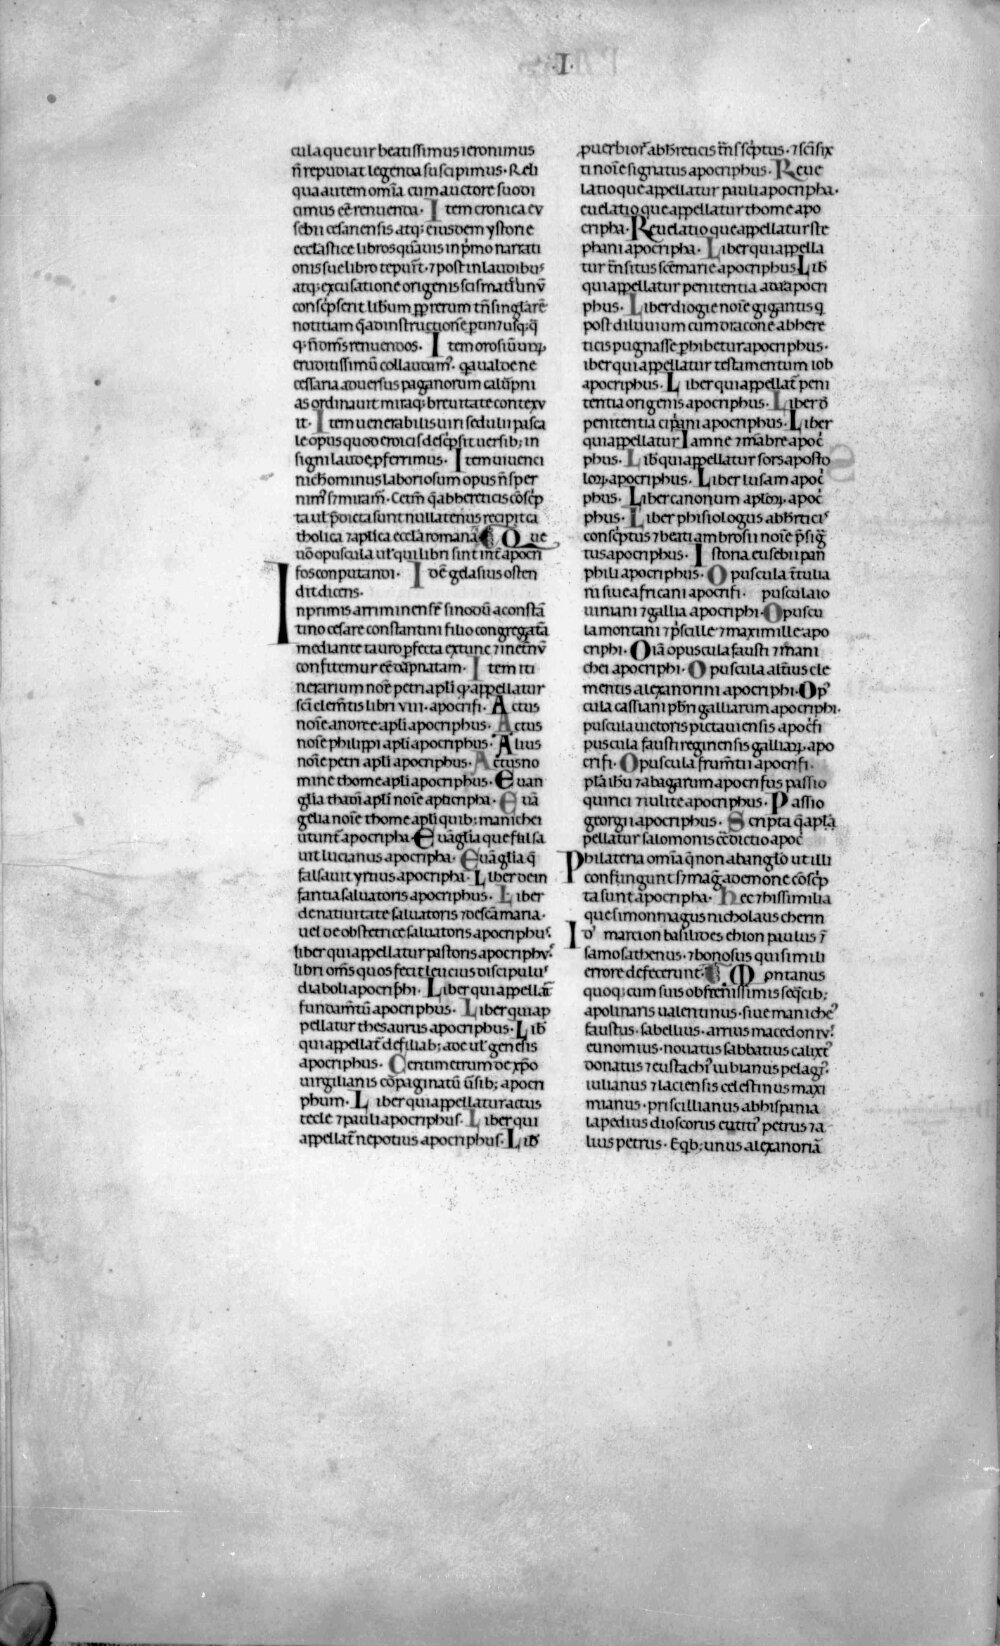 .I.
cula que uir beatissimus ieronimus
n̄ repudiat legenda suscipimus. Reli
qua autem om̄ia cum auctore suo di
cimus eē renuenda. Item cronica eu
sebii cesariensis atq; eiusdem ystorie
ecclastice libros quāuis in p̍mo narrati
onis sue libro tepuit̄. ⁊ post in laudibus
atq; excusatione origenis scismatici unū
conscp̍serit librum
notitiam q̄ ad instructionē ꝑtin⁊ usq; q̄
q; n̄ om̄s renuendos. Item orosiū uiꝝ
eruditissimū collaudam᷒. q̍a ualde ne
cessaria aduersus paganorum calūpni
as ordinauit miraq; breuitate contexu
it. Item uenerabilis uiri sedulii pasca
le opus quod eroicis descp̍sit uersib; in
signi laude p̄ferrimus. Item iuuenci
nichominus laboriosum opus n̄ sper
nim᷒ s⁊ miram᷒. Ceter̄ q̄ ab hereticis cōscp̍
ta ul̄ p̄dicta sunt nullatenus recipit ca
tholica ⁊ aplica eccl̄a romana. Que
uō opuscula ul̄ qui libri sint int̄ apocri
fos conputandi. Idē gelasius osten
dit dicens.
Inprimis arriminensē sinodū a constā
tino cesare constantini filio congregatā
mediante tauro p̄fecta ex tunc ⁊ in et̄nū
confitemur eē dāpnatam. Item iti
nerarium noīe petri apli q̍ appellatur
sc̄i clem̄tis libri viii. apocrifi. Actus
noīe andree apli apocriphus. Actus
noīe philippi apli apocriphus. Alius
noīe petri apli apocriphus. Actus no
mine thome apli apocriphus. Euan
glia thadi apli noīe apocripha. Euā
gelia noīe thome apli quib; manichei
utunt̄ apocripha. Euāglia que falsa
uit lucianus apocripha. Euāglia q̄
falsauit yrtius apocripha. Liber de in
fantia saluatoris apocriphus. Liber
de natiuitate saluatoris ⁊ de sc̄a maria.
uel de obstetrice saluatoris apocriphus.
liber qui appellatur pastoris apocriphus.
libri om̄s quos fecit leucius discipulus
diaboli apocriphi. Liber qui appellat̄
fundam̄tū apocriphus. Liber qui ap
pellatur thesaurus apocriphus. Lib̄
qui appellat̄ de filiab; ade ul̄ genesis
apocriphus. Centimetrum de xp̄o
uirgilianis cōpaginatū ūsib; apocri
phum. Liber qui appellatur actus
tecle ⁊ pauli apocriphus. Liber qui
appellat̄ nepotius apocriphus. Lib̄
ꝓuerbior᷒ ab hereticis
ti noīe signatus apocriphus. Reue
latio que appellatur pauli apocripha.
euelatio que appellatur thome apo
cripha. Reuelatio que appellatur ste
phani apocripha. Liber qui appella
tur trn̄situs sc̄e marie apocriphus Lib̄
qui appellatur penitentia ade apocri
phus. Liber diogie noīe gigantis q̍
post diluuium cum dracone ab here
ticis pugnasse ꝑhibetur apocriphus.
iber qui appellatur testamentum iob
apocriphus. Liber qui appellat̄ peni
tentia origenis apocriphus. Liber d̄
penitentia cip̍ani apocriphus. Liber
qui appellatur Iamne ⁊ mābre apoc̍
phus. Lib̄ qui appellatur sors aposto
loꝝ apocriphus. Liber lusam apoc̍
phus. Liber canonum aploꝝ. apoc̍
phus. Liber phisiologus ab hereticis
conscp̍tus ⁊ beati ambrosii noīe p̄sig̍
tus apocriphus. Istoria eusebii pan
phili apocriphus. Opuscula t̄tulia
ni siue africani apocrifi. puscula io
uiniani ⁊ gallia apocriphi. Opuscu
la montani ⁊ p̍scille ⁊ maximille apo
criphi. Oīa opuscula fausti ⁊ mani
chei apocriphi. Opuscula alt̄ius cle
mentis alexandrini apocriphi. Op᷒
cula cassiani pb̄ri galliarum apocriphi.
puscula uictoris pictauiensis apoc̍fi
puscula fausti reginensis galliaꝝ apo
crifi. Opuscula frum̄tii apocrifi.
pl̄a ih̄u ⁊ abagarum apocrifus passio
quirici ⁊ iulite apocriphus. Passio
georgii apocriphus. Scripta q̄ apl̄a
pellatur salomonis ⁊tdictio apoc̍
Philateria om̄ia q̄ non ab anglo ut illi
confingunt s⁊ mag̍ a demone cōscp̍
ta sunt apocripha. Hec ⁊ his similia
que simon magus nicholaus cherin
marcion basilides ebion paulus ⁊̄
samosathenus. ⁊ bonosus qui simili
errore defecerunt. Montanus
quoq; cum suis obscenissimis seq̄cib;
apolinaris ualentinus. siue maniche᷒
faustus. sabellius. arrius macedoniu᷒.
eunomius. nouatus sabbatius calixt᷒
donatus ⁊ eustachi᷒ iubianus pelagi᷒.
iulianus ⁊ laciensis celestinus maxi
mianus. priscillianus ab hispania
lapedius dioscorus eutiti᷒ petrus ⁊ a
lius petrus. Eqb; unus alexandriā